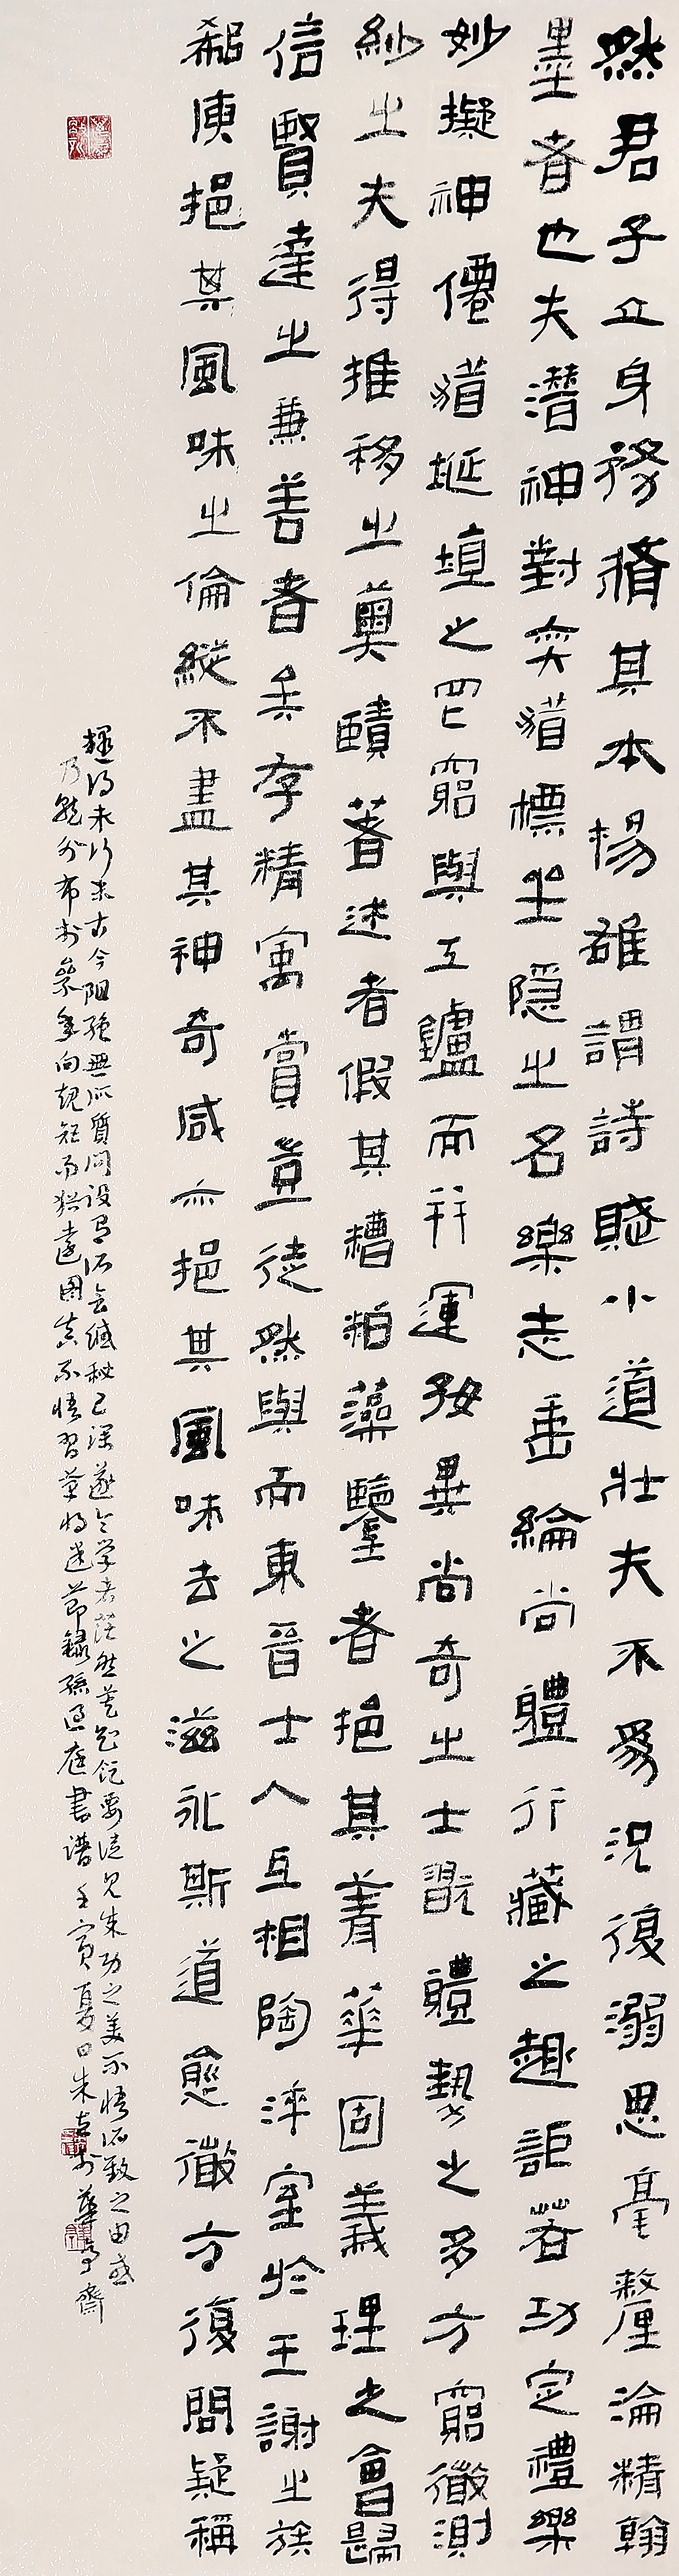 然君子立身務脩其本楊雄謂詩賦小道壯夫不為況復溺思毫釐淪精翰
墨者也夫潛神對奕猶標坐隱之名樂志垂綸尚體行藏之趣詎若功定禮樂
妙擬神僊猶埏埴之罔窮與工鑪而並運好異尚奇之士翫體勢之多方窮微測
紗之夫得推移之奧賾著述者假其糟粕藻鑒者挹其菁華固義理之會歸
信賢達之兼善者矣存精寓賞豈徒然與而東晉士人互相陶淬室於王謝之族
郗庾挹其風味之倫縱不盡其神奇咸亦挹其風味去之滋永斯道愈微方復聞疑稱
得末行末古今阻絕無所質問設有所會緘秘已深遂令學者茫然莫知領要徒見成功之美不悟所致之由或
乃就分布於累年向規矩而猶遠圖真不悟習草將迷節錄孫過庭書譜壬寅夏日朱於華亭齋